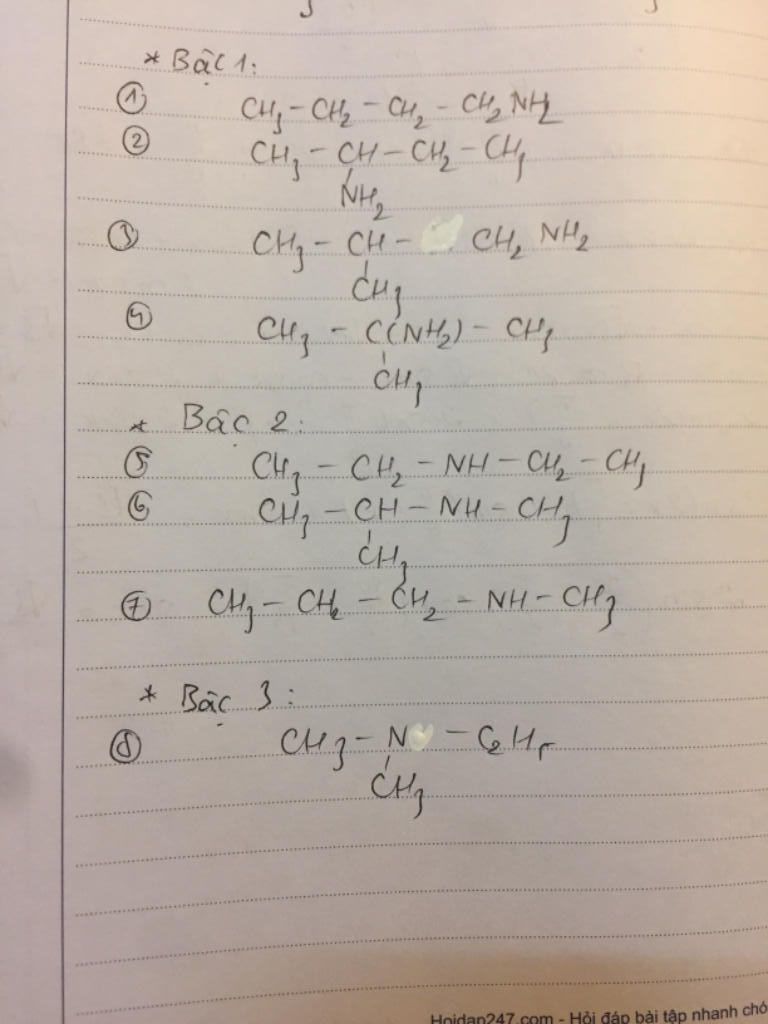 * Bậc 1:
① CH₃ – CH₂ – CH₂ – CH₂ NH₂
② CH₃ – CH – CH₂ – CH₃
NH₂
③ CH₃ – CH – CH₂ NH₂
CH₃
④ CH₃ – C(NH₂) – CH₃
CH₃
* Bậc 2:
⑤ CH₃ – CH₂ – NH – CH₂ – CH₃
⑥ CH₃ – CH – NH – CH₃
CH₃
⑦ CH₃ – CH₂ – CH₂ – NH – CH₃
* Bậc 3:
⑧ CH₃ – N – C₂H₅
CH₃
Hoidap247.com - Hỏi đáp bài tập nhanh chó